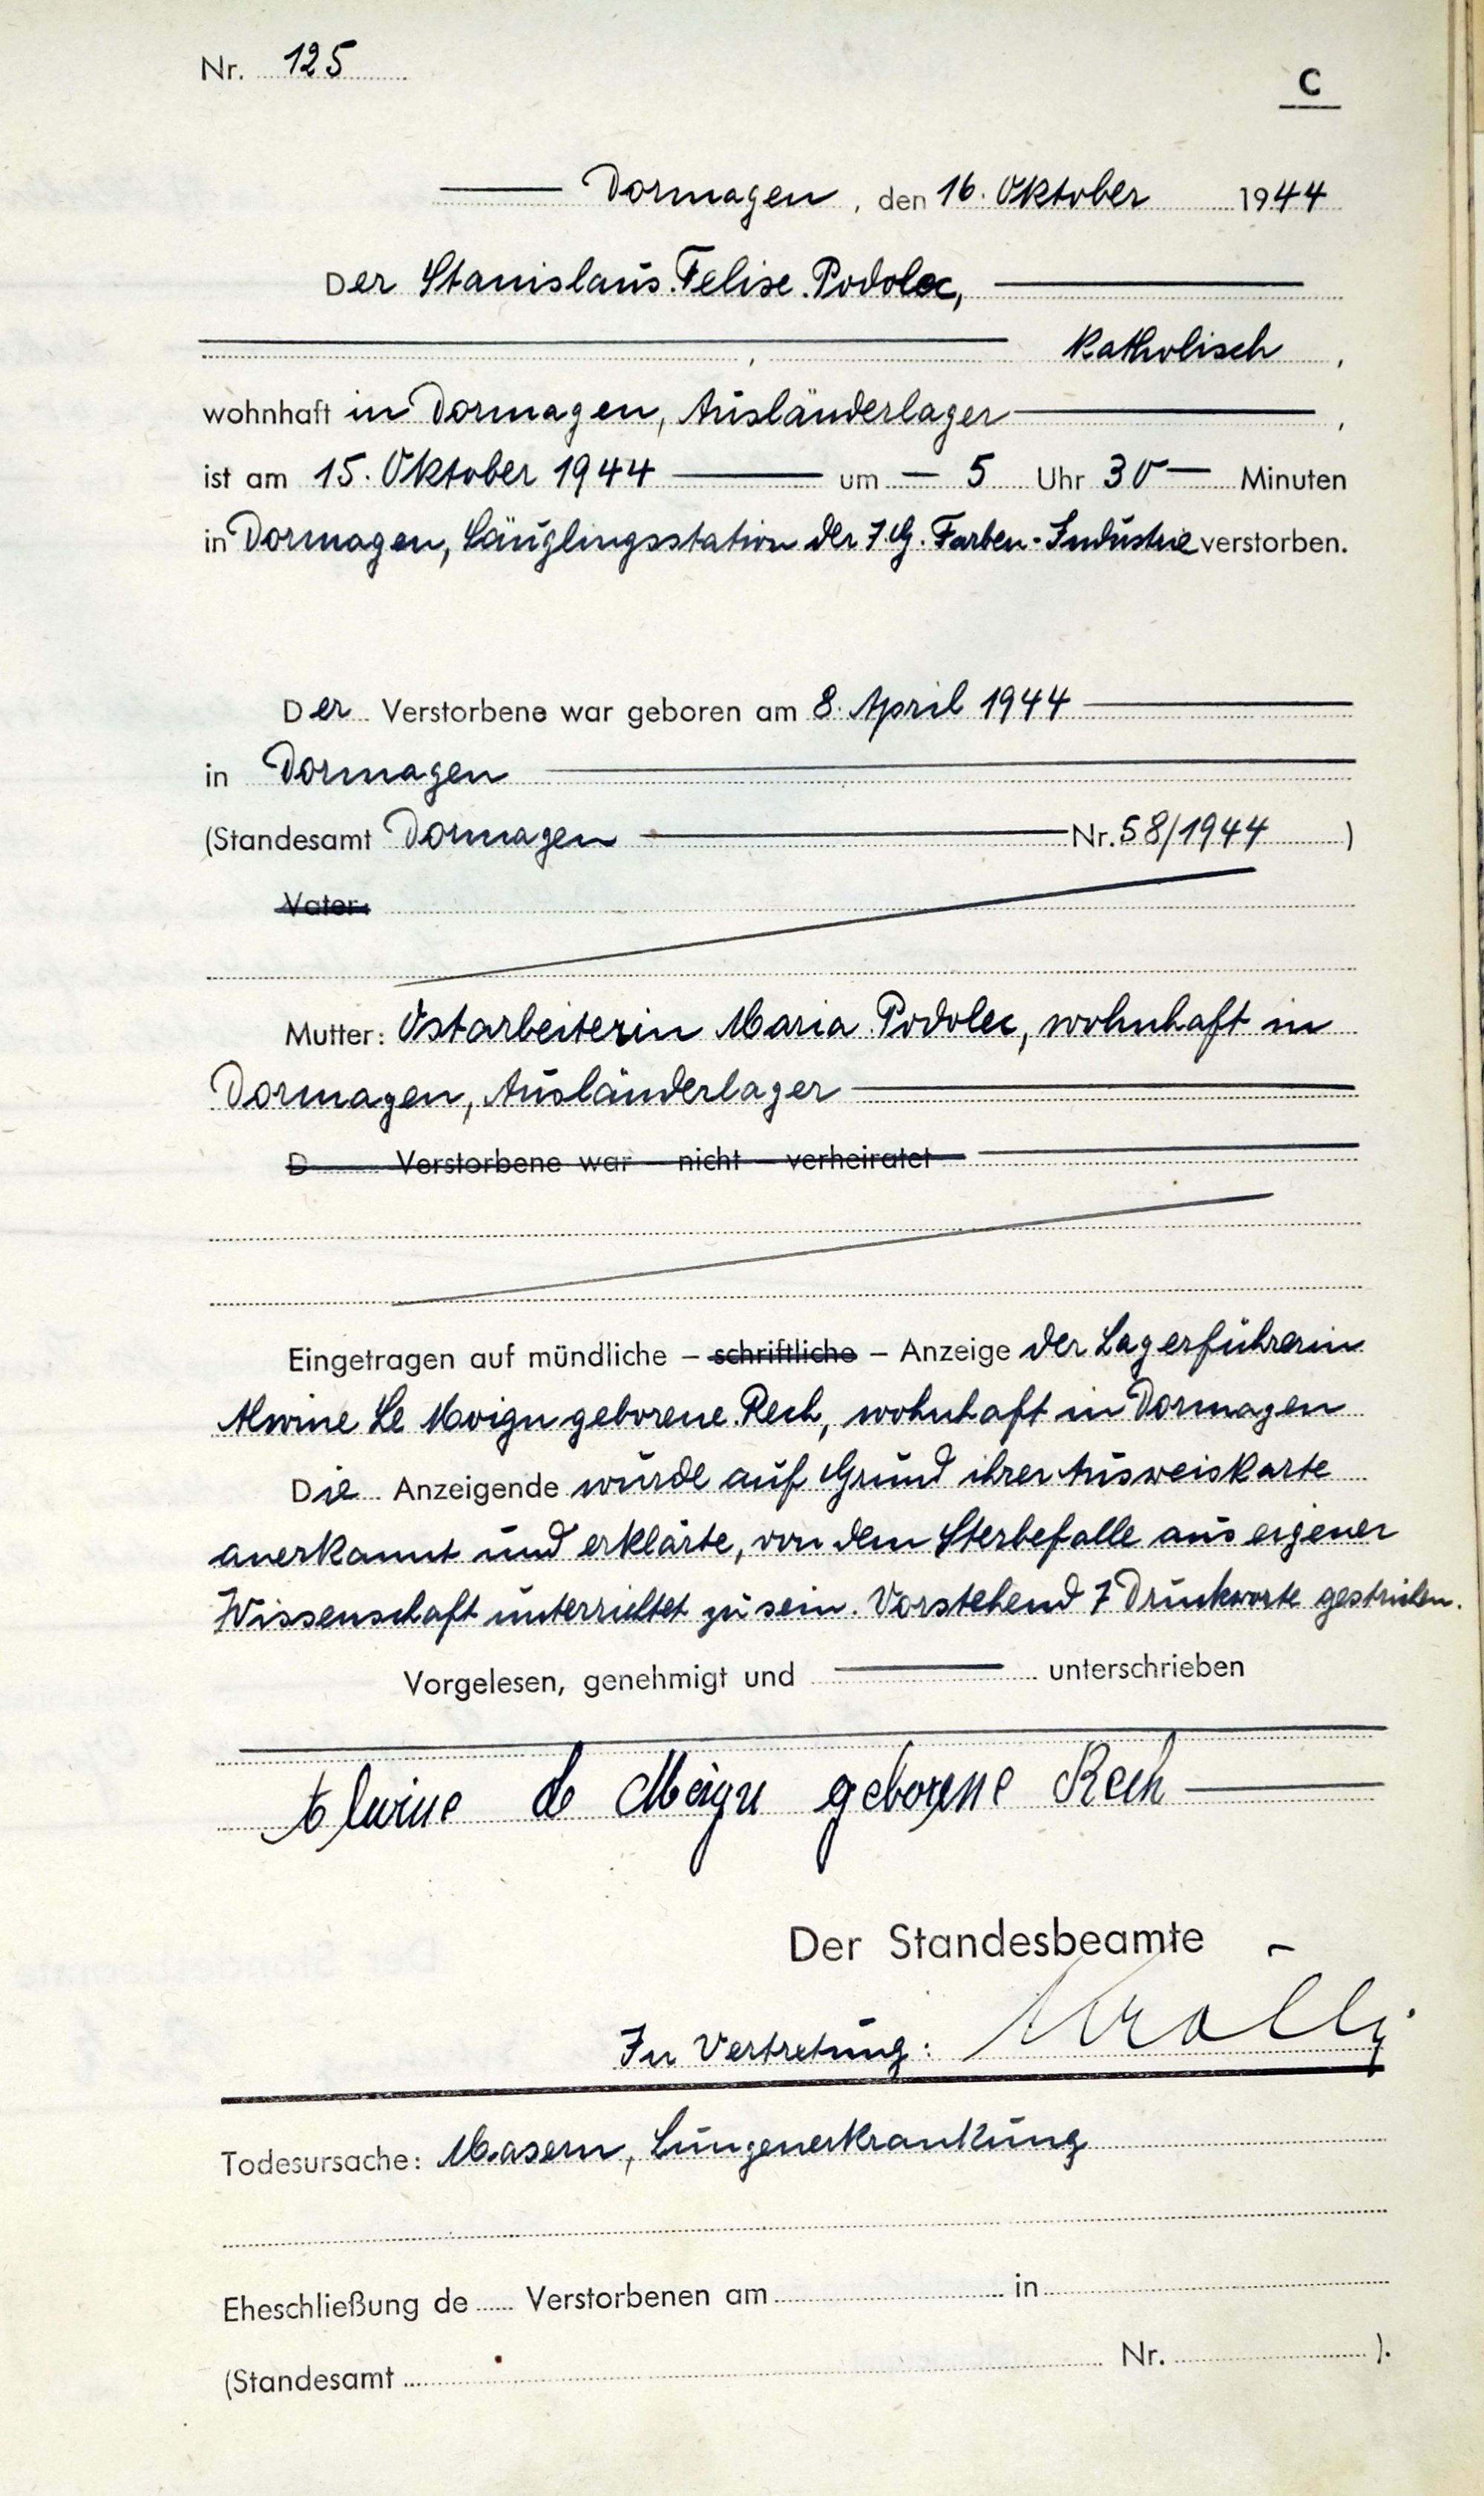 Nr. 125
C
Dormagen, den 16. Oktober 1944
Der Stanislaus Felise Podolec,
katholisch,
wohnhaft in Dormagen, Ausländerlager,
ist am 15. Oktober 1944 um 5 Uhr 30 Minuten
in Dormagen, Säuglingsstation der I.G. Farben-Industrie verstorben.
Der Verstorbene war geboren am 8. April 1944
in Dormagen
(Standesamt Dormagen Nr. 58/1944)
Vater:
Mutter: Ostarbeiterin Maria Podolec, wohnhaft in
Dormagen, Ausländerlager
D Verstorbene war – nicht – verheiratet
Eingetragen auf mündliche – schriftliche – Anzeige der Lagerführerin
Alwine Le Moign geborene Rech, wohnhaft in Dormagen
Die Anzeigende wurde auf Grund ihrer Ausweiskarte
anerkannt und erklärte, von dem Sterbefalle aus eigener
Wissenschaft unterrichtet zu sein. Vorstehend 7 Druckworte gestrichen.
Vorgelesen, genehmigt und unterschrieben
Alwine Le Moign geborene Rech
Der Standesbeamte
In Vertretung:
Todesursache: Masern, Lungenerkrankung
Eheschließung de Verstorbenen am in
(Standesamt Nr. ).